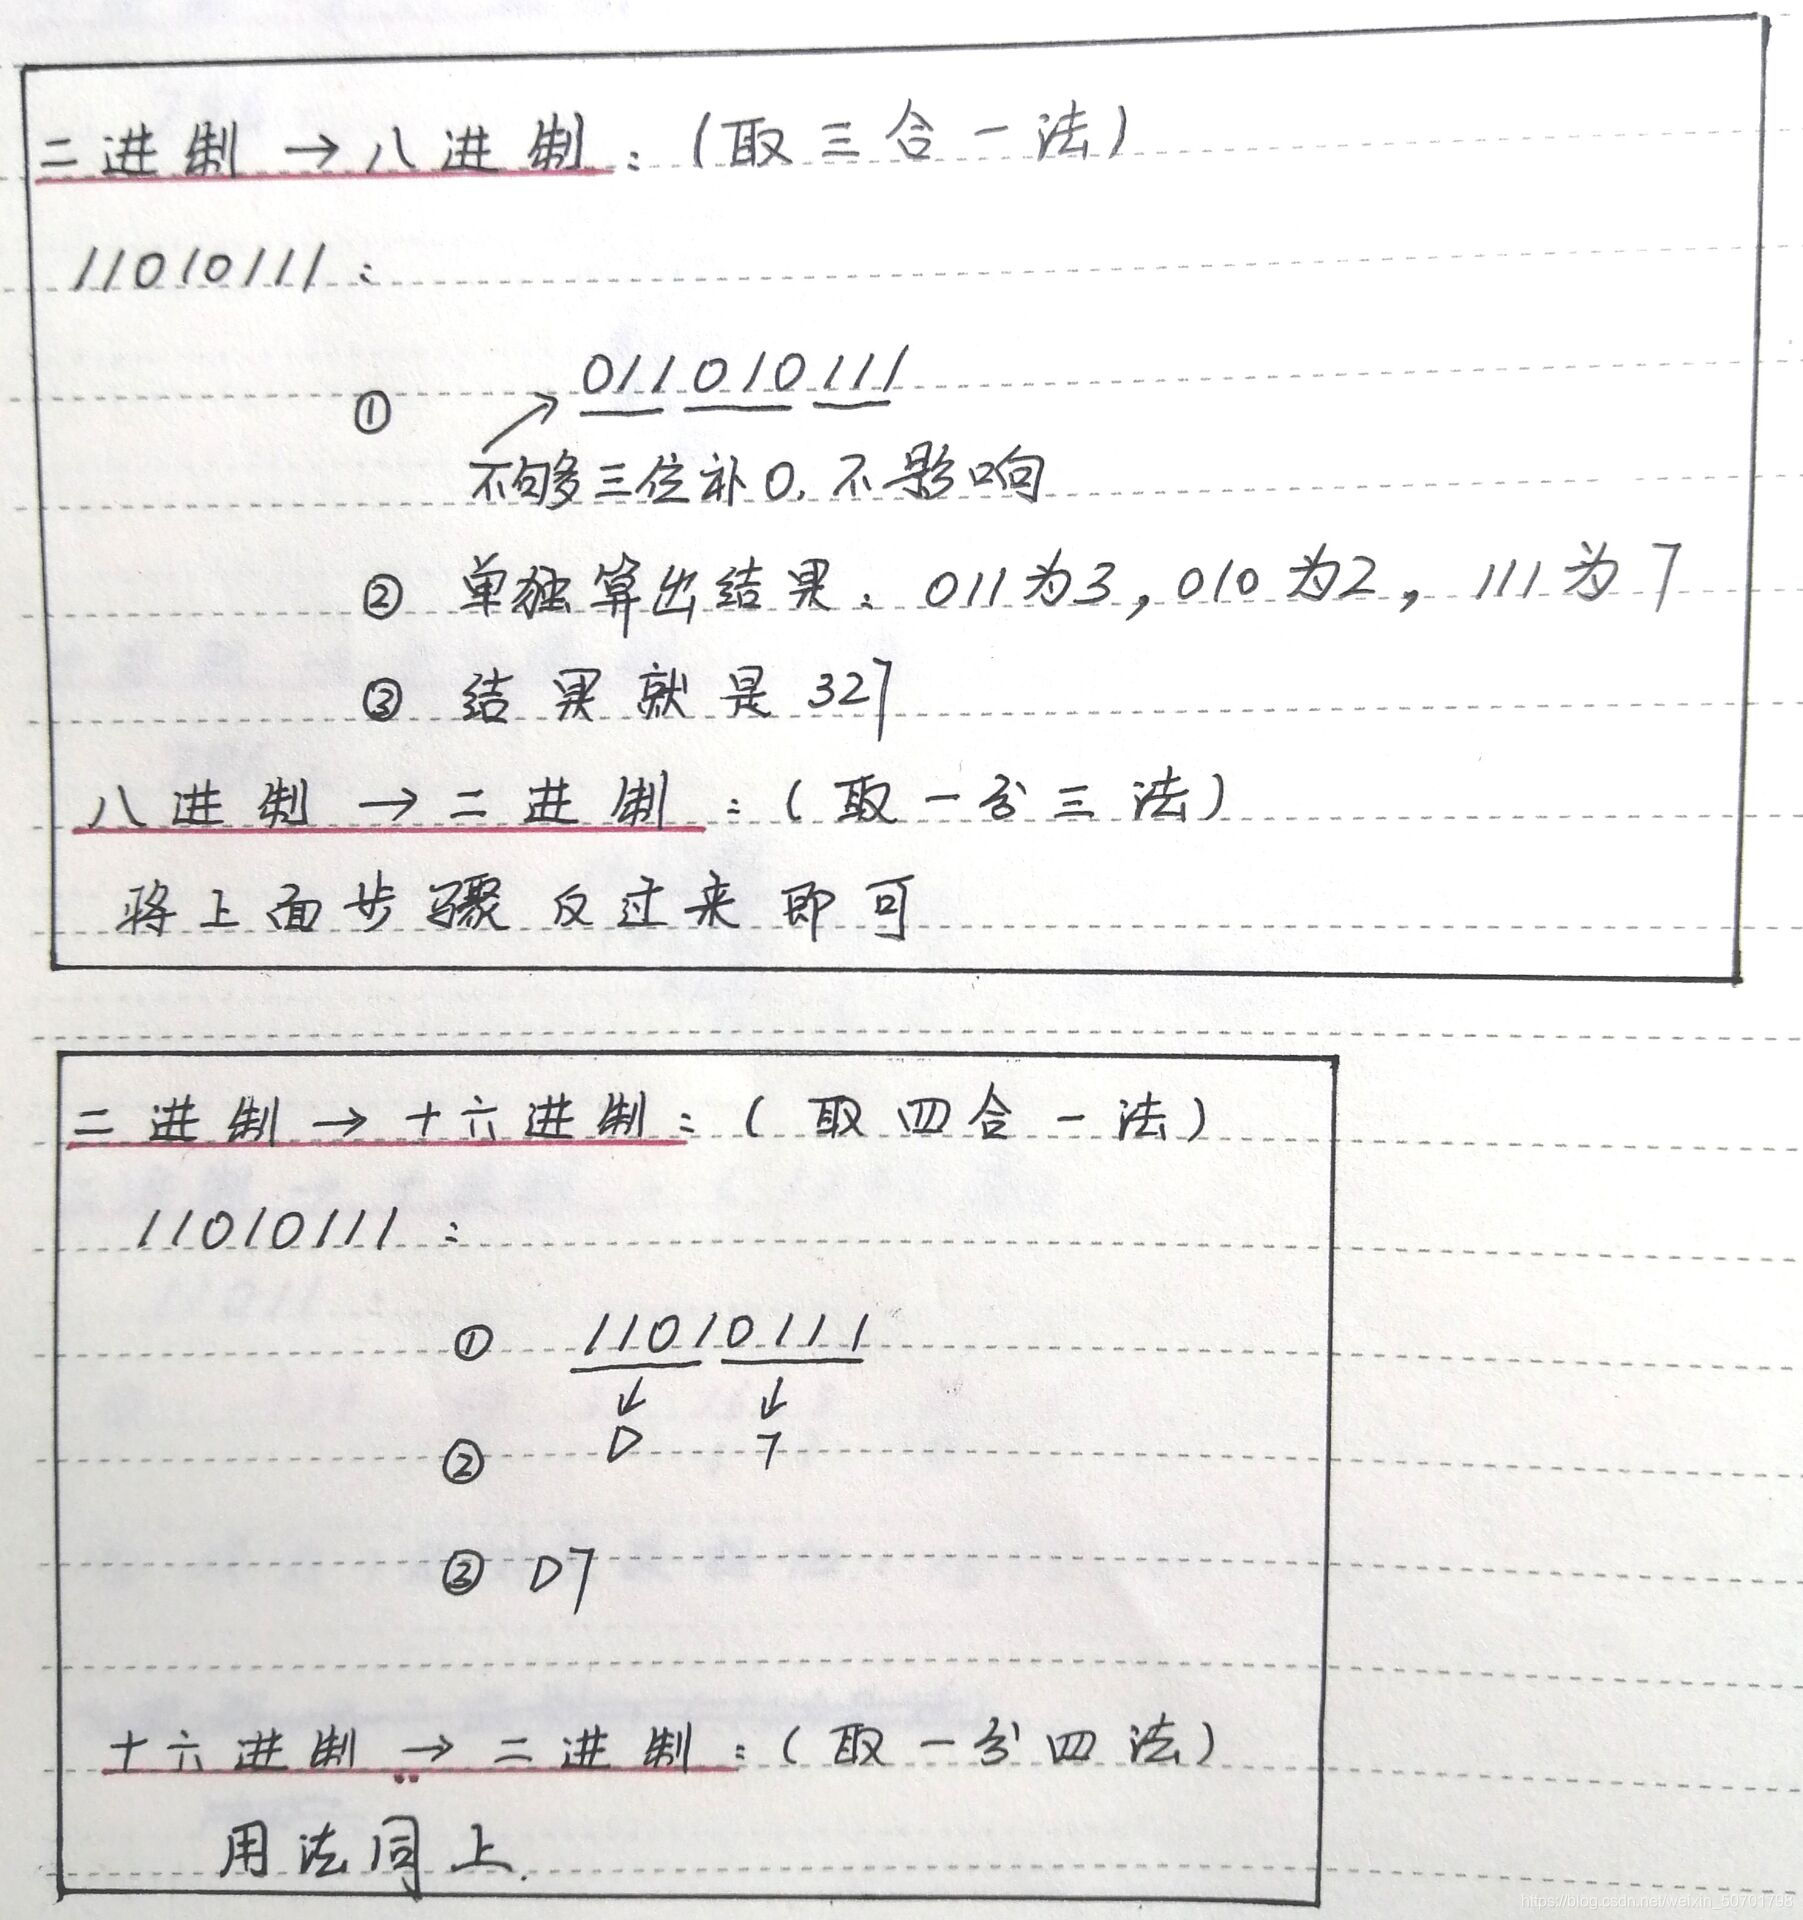 二进制→八进制:(取三合一法)
11010111:
① 011010111
不够三位补0,不影响
② 单独算出结果:011为3,010为2,111为7
③ 结果就是327
八进制→二进制:(取一分三法)
将上面步骤反过来即可
二进制→十六进制:(取四合一法)
11010111:
① 11010111
↓ ↓
② D 7
③ D7
十六进制→二进制:(取一分四法)
用法同上.
https://blog.csdn.net/weixin_50701798